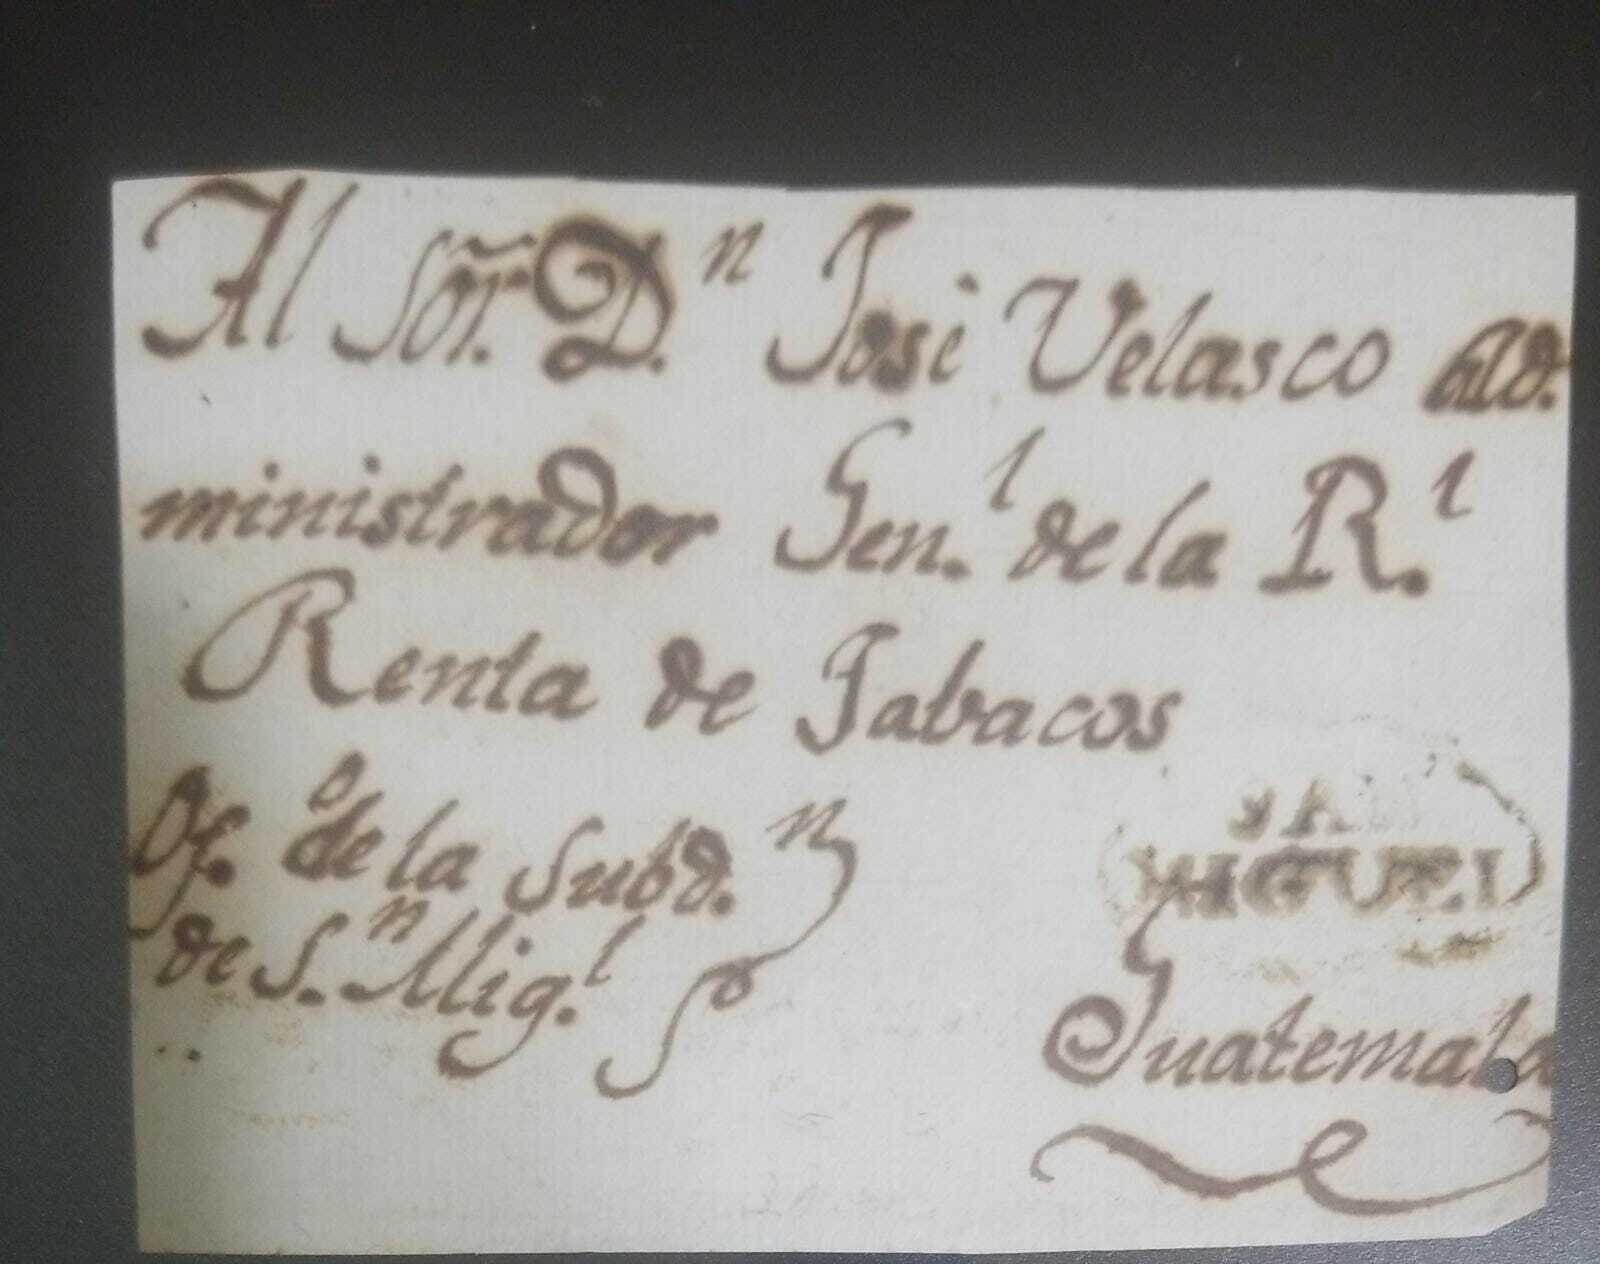 Al Sõr. D.ⁿ José Velasco Ad.
ministrador Gen.ˡ de la R.ˡ
Renta de Tabacos
Of.º de la Subd.ⁿ
de S.ⁿ Mig.ˡ
SAN
MIGUEL
Guatemala